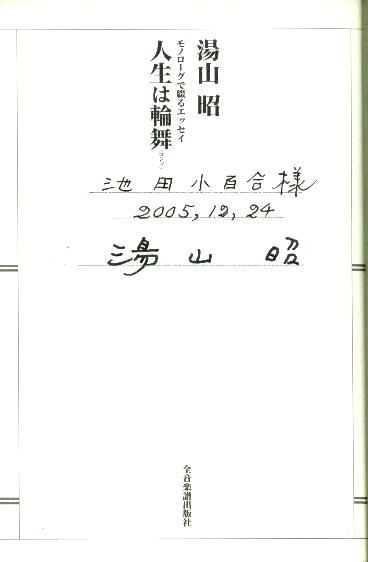 湯山 昭
モノローグで綴るエッセイ
人生は輪舞
池田小百合様
2005,12,24
湯山 昭
全音楽譜出版社